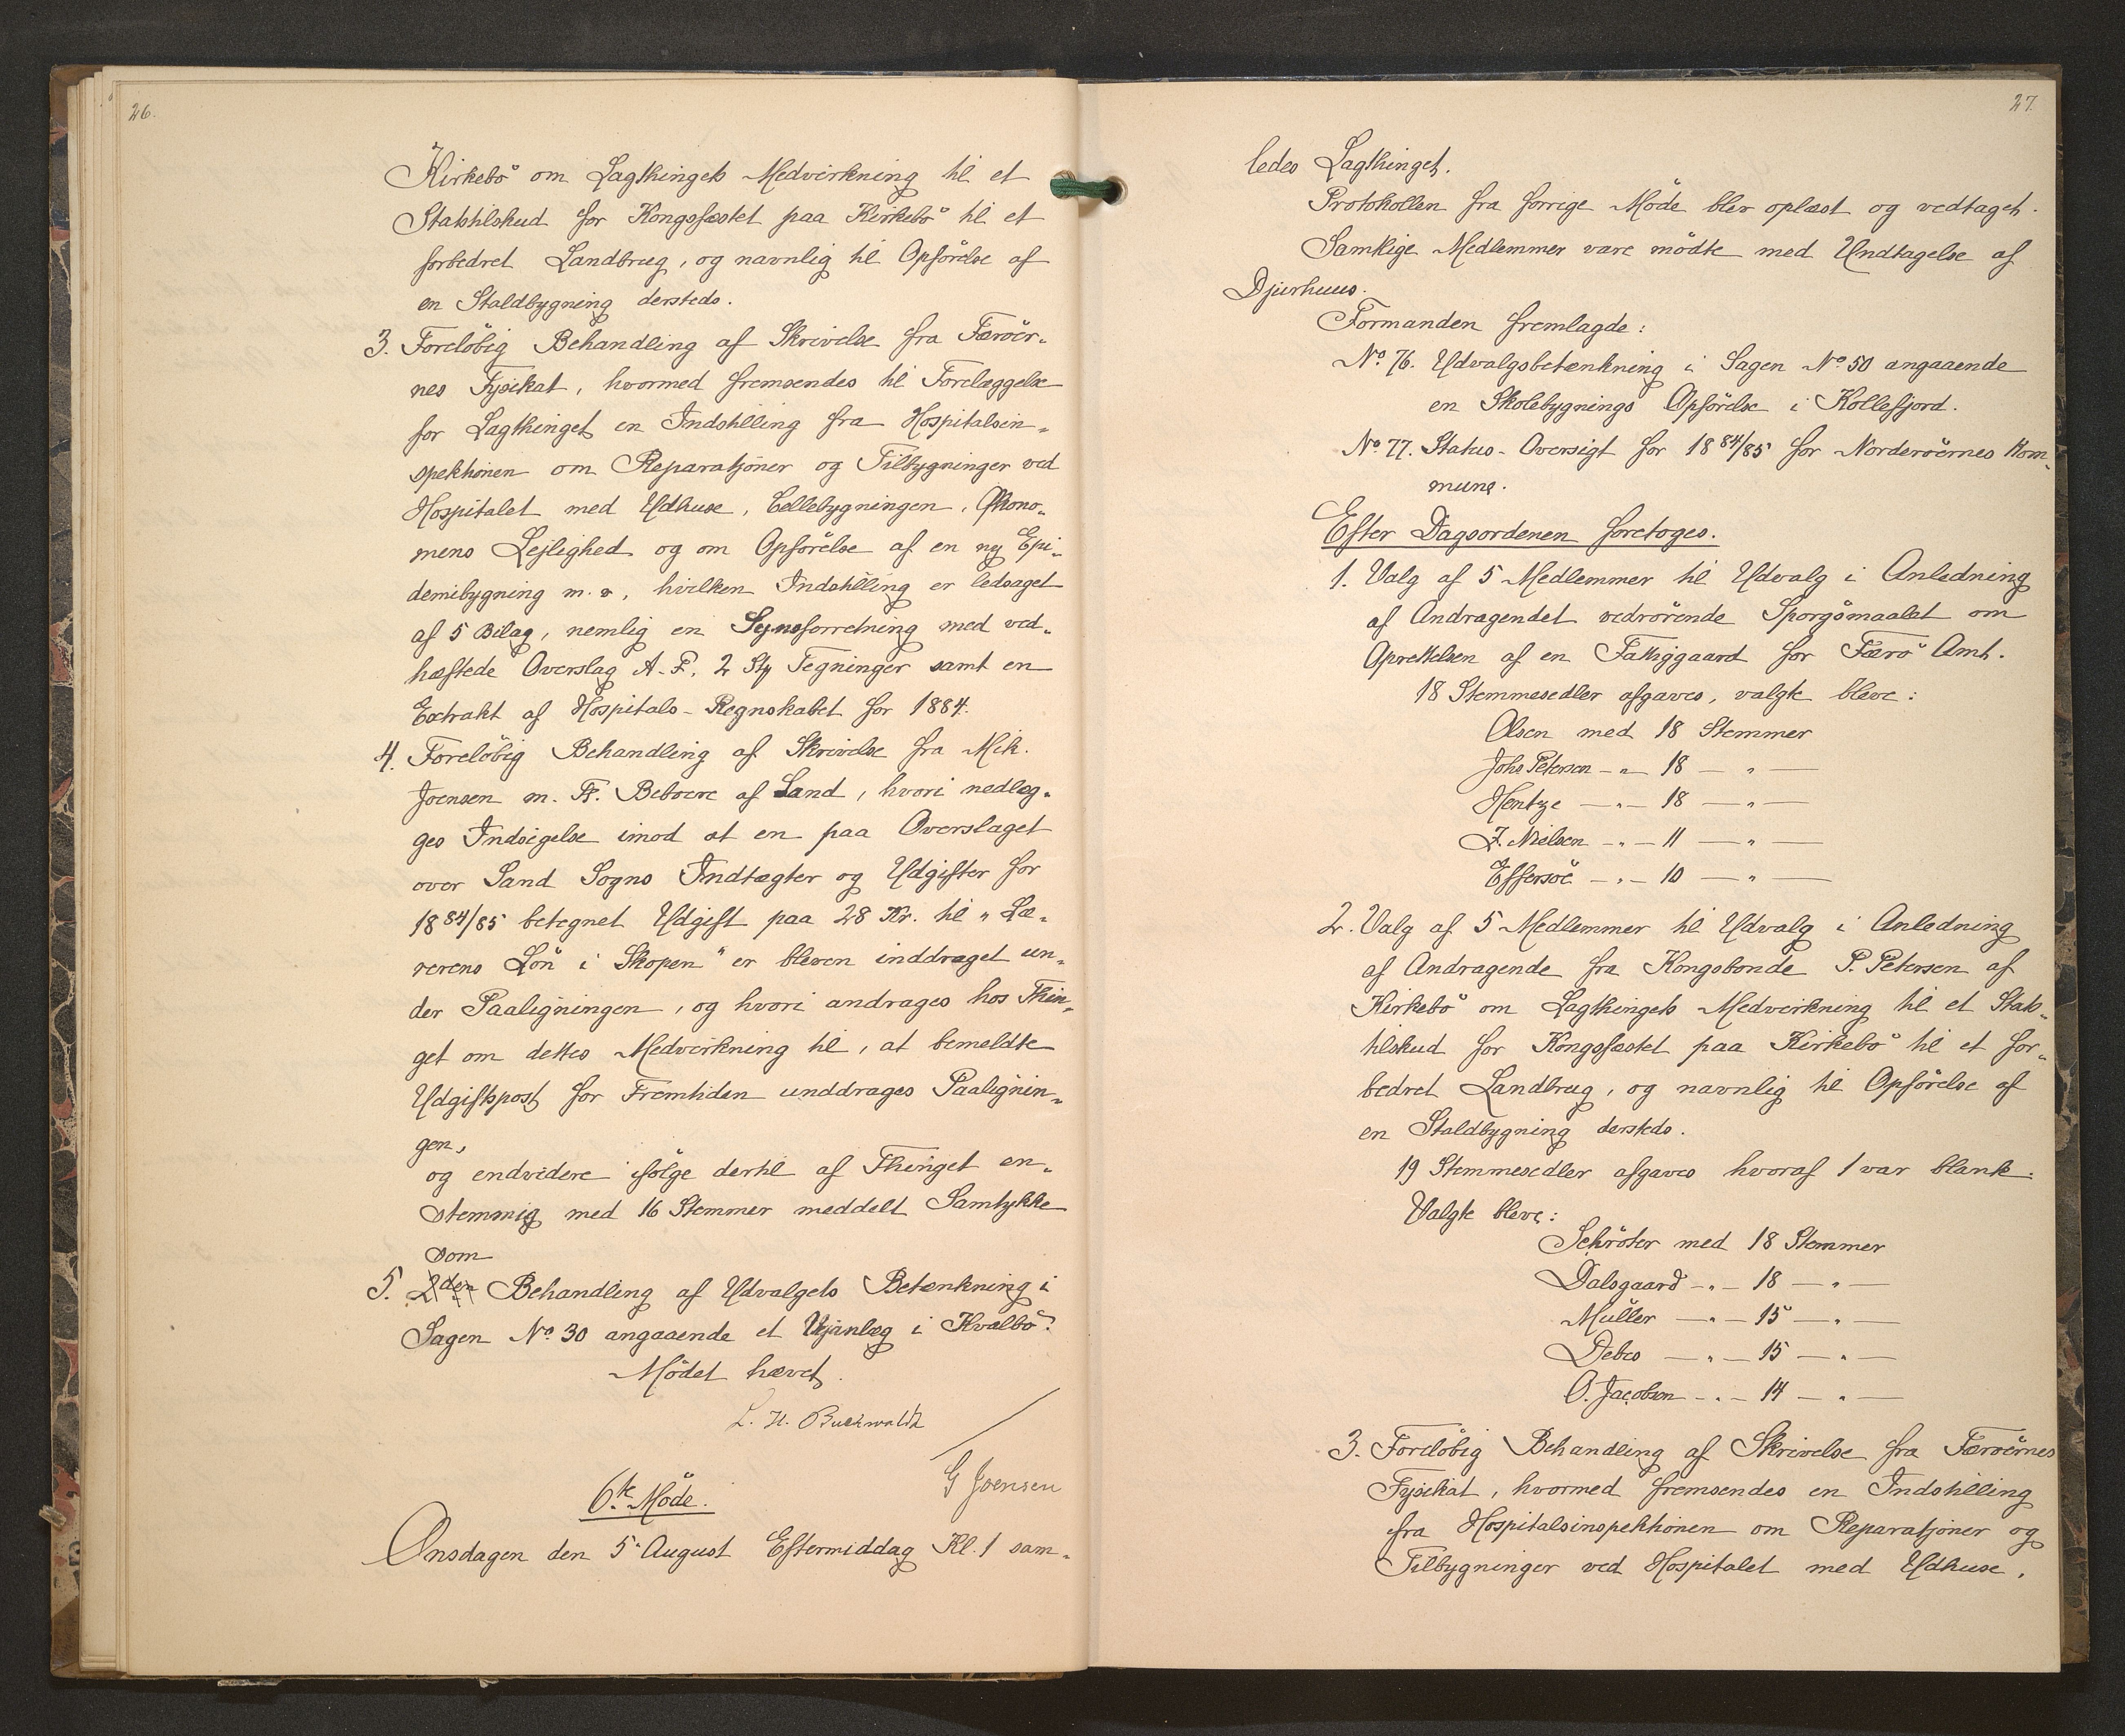 26.
Kirkebö om Lagthingets Medvirkning til et
Statstilskud for Kongsfæstet paa Kirkebö til et
forbedret Landbrug, og navnlig til Opförelse af
en Staldbygning dersteds.
3. Forelöbig Behandling af Skrivelse fra Færöer-
nes Fysikat, hvormed fremsendes til Forelæggelse
for Lagthinget en Indstilling fra Hospitalsin-
spektionen om Reparatjoner og Tilbygninger ved
Hospitalet med Udhuse, Cellebygningen, Økono-
mens Lejlighed og om Opförelse af en ny Epi-
demibygning m. v., hvilken Indstilling er ledsaget
af 5 Bilag, nemlig en Synsforretning med ved-
hæftede Overslag A-F, 2 Stk Tegninger samt en
Extrakt af Hospitals-Regnskabet for 1884.
4. Forelöbig Behandling af Skrivelse fra Mik.
Joensen m. Fl. Beboere af Sand, hvori nedlæg-
ges Indsigelse imod at en paa Overslaget
over Sand Sogns Indtægter og Udgifter for
1884/85 betegnet Udgift paa 28 Kr. til "Læ-
rerens Lön i Skopen" er bleven inddraget un-
der Paaligningen, og hvori andrages hos Thin-
get om dettes Medvirkning til, at bemeldte
Udgiftspost for Fremtiden unddrages Paalignin-
gen,
og endvidere ifölge dertil af Thinget en-
stemmig med 16 Stemmer meddelt Samtykke
som
5. 2den Behandling af Udvalgets Betænkning i
Sagen No. 30 angaaende et Vejanlæg i Kvalbö.
Mödet hævet.
L. H. Buchwaldt
G Joensen
6te Möde.
Onsdagen den 5. August Eftermiddag Kl. 1 sam-
27.
ledes Lagthinget.
Protokollen fra forrige Möde blev oplæst og vedtaget.
Samtlige Medlemmer vare mödte med Undtagelse af
Djurhuus.
Formanden fremlagde:
No. 76. Udvalgsbetænkning i Sagen No 50 angaaende
en Skolebygnings Opförelse i Kollefjord.
No 77. Status-Oversigt for 1884/85 for Norderöernes Kom-
mune.
Efter Dagsordenen foretoges.
1. Valg af 5 Medlemmer til Udvalg i Anledning
af Andragendet vedrörende Sporgsmaalet om
Oprettelsen af en Fattiggaard for Færö Amt.
18 Stemmesedler afgaves, valgte bleve:
Olsen med 18 Stemmer
Johs Petersen - " - 18 - " -
Hentze - " - 18 - " -
J. Nielsen - " - 11 - " -
Effersöe - " - 10 - " -
2. Valg af 5 Medlemmer til Udvalg i Anledning
af Andragende fra Kongsbonde P. Petersen af
Kirkebö om Lagthingets Medvirkning til et Stats-
tilskud for Kongsfæstet paa Kirkebö til et for-
bedret Landbrug, og navnlig til Opförelse af
en Staldbygning dersteds.
19 Stemmesedler afgaves hvoraf 1 var blank.
Valgte bleve:
Schröter med 18 Stemmer
Dalsgaard - " - 18 - " -
Müller - " - 15 - " -
Debes - " - 15 - " -
O. Jacobsen - " - 14 - " -
3. Forelöbig Behandling af Skrivelse fra Færöernes
Fysikat, hvormed fremsendes en Indstilling
fra Hospitalsinspektionen om Reparatjoner og
Tilbygninger ved Hospitalet med Udhuse,